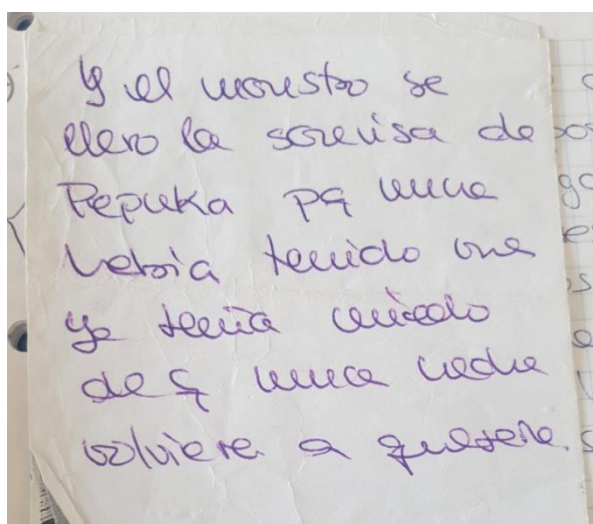 Y el monstro se
llevo la sonrisa de
Pepuka pq nunca
habia tenido una
ya tenia miedo
de q nunca nadie
volviera a quererla